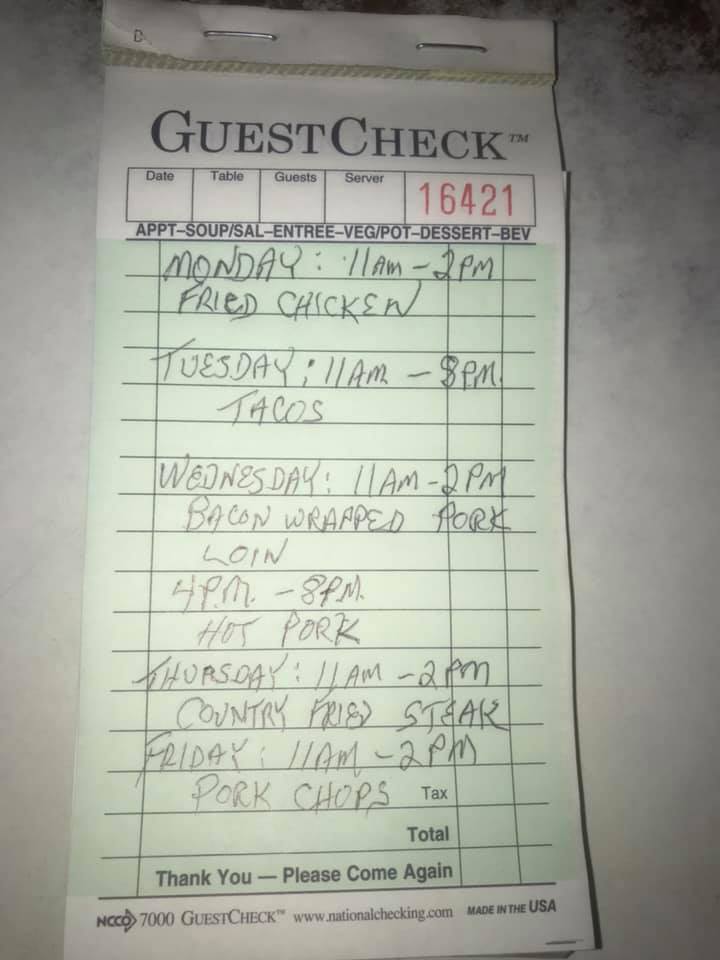 D
GUESTCHECK™
Date Table Guests Server 16421
APPT–SOUP/SAL–ENTREE–VEG/POT–DESSERT–BEV
MONDAY: 11AM – 2PM
FRIED CHICKEN
TUESDAY: 11AM – 8PM.
TACOS
WEDNESDAY: 11AM – 2PM
BACON WRAPPED PORK
LOIN
4P.M. – 8P.M.
HOT PORK
THURSDAY: 11AM – 2PM
COUNTRY FRIED STEAK
FRIDAY: 11AM – 2PM
PORK CHOPS Tax
Total
Thank You — Please Come Again
NCCO 7000 GUESTCHECK™ www.nationalchecking.com MADE IN THE USA